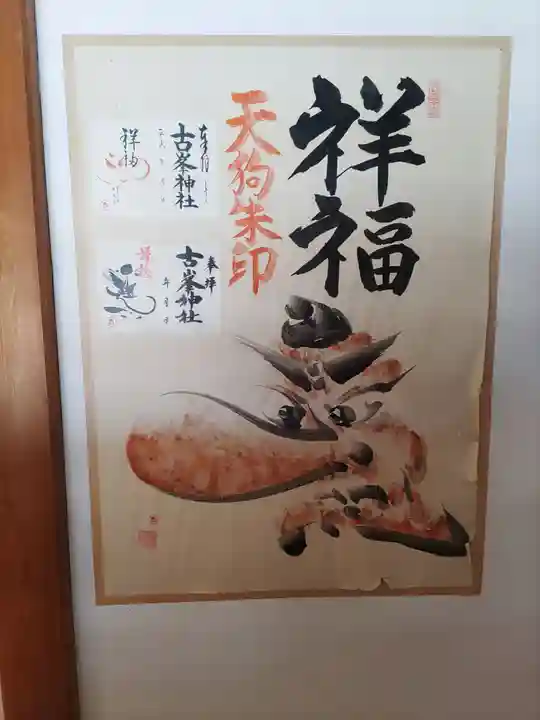 祥福
天狗朱印
奉拝
古峯神社
祥福
奉拝
古峯神社
年月日